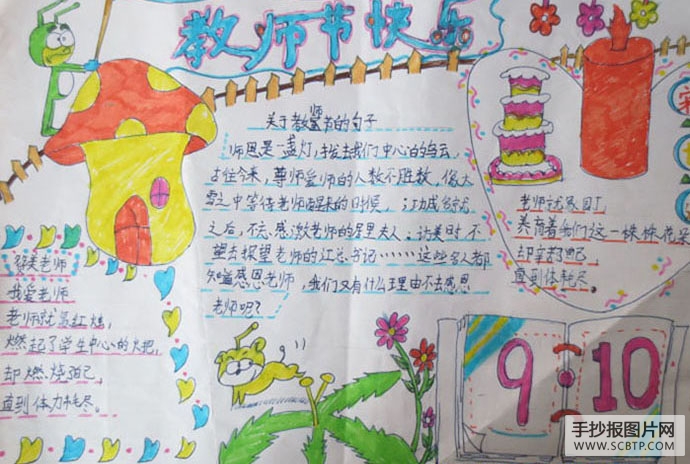 教师节快乐
关于教师节的句子
师恩是一盏灯,拨去我们中心的乌云,
古往今来,尊师爱师的人数不胜数,像
雪之中等待老师醒来的时候,
之后,不忘感激老师的居里夫人;访美时不
望去探望老师的江总书记……这些名人都
感恩老师,我们又有什么理由不去感恩
老师呢?
赞美老师
我爱老师
老师就是红烛,
燃起了学生中心的火把,
却燃烧自己,
直到体力耗尽。
老师就是园丁,
养育着他们这一株株花朵
却辛苦自己
直到体耗尽。
9·10
手抄报图片网
WWW.SCBTP.COM